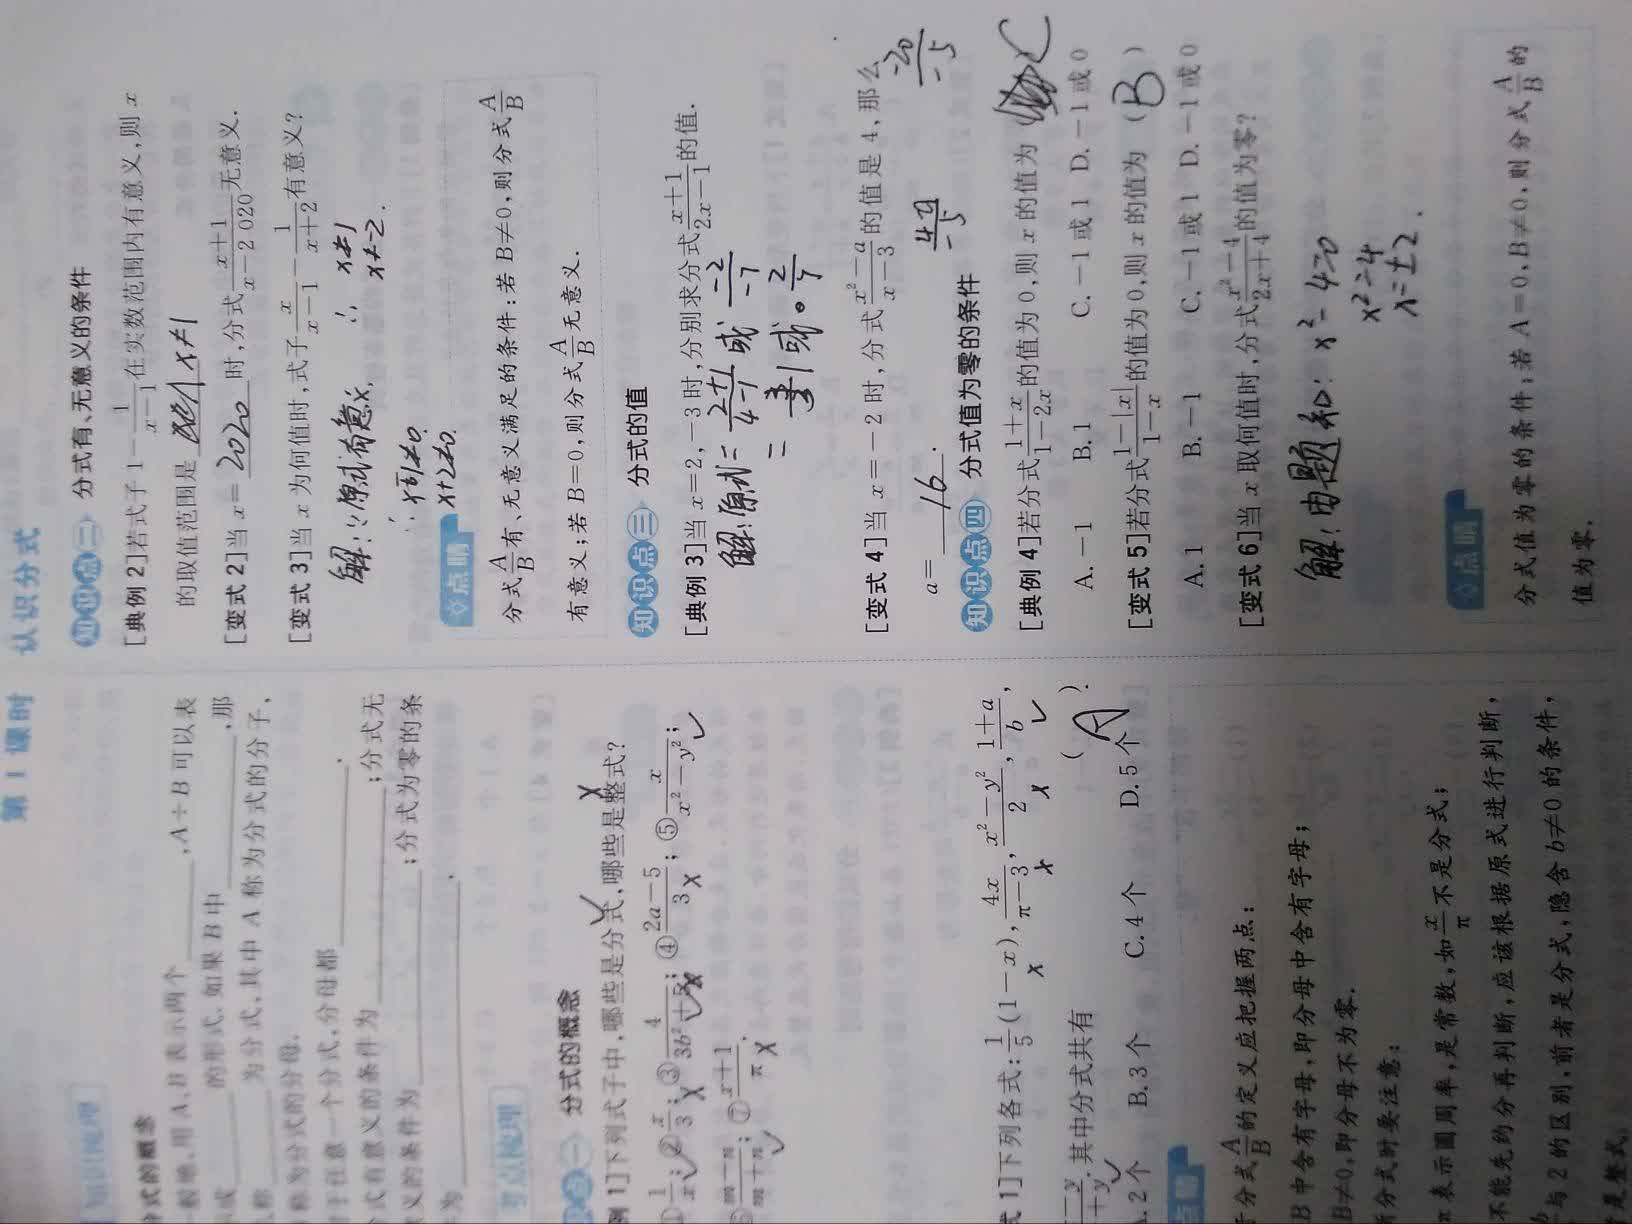 第 1 课时 认识分式
分式的概念
,A÷B 可以表
的形式.如果 B 中 ,那
为分式,其中 A 称为分式的分子,
称为分式的分母.
于任意一个分式,分母都 .
式有意义的条件为 ;分式无
义的条件为 ;分式为零的条
为 .
考点梳理
分式的概念
例 1]下列式子中,哪些是分式,哪些是整式?
①1/x;②x/3;③4/(3b²+5);④(2a-5)/3;⑤x/(x²-y²);
⑦(x+1)/π.
式 1]下列各式:1/5(1-x),4x/(π-3),(x²-y²)/2,(1+a)/b,
其中分式共有 ( A ).
A.2个 B.3个 C.4个 D.5个
点睛
分式A/B的定义应把握两点:
B 中含有字母,即分母中含有字母;
B≠0,即分母不为零.
分式时要注意:
π表示圆周率,是常数,如x/π不是分式;
不能先约分再判断,应该根据原式进行判断,
与2的区别,前者是分式,隐含b≠0的条件,
是整式.
知识点二 分式有、无意义的条件
[典例 2]若式子1-1/(x-1)在实数范围内有意义,则x
的取值范围是 x≠1
[变式 2]当x= 2020 时,分式(x+1)/(x-2 020)无意义.
[变式 3]当x为何值时,式子x/(x-1)-1/(x+2)有意义?
解:∵原式有意义.
∴x-1≠0. ∴ x≠1
x+2≠0. x≠-2.
点睛
分式A/B有、无意义满足的条件:若B≠0,则分式A/B
有意义;若B=0,则分式A/B无意义.
知识点三 分式的值
[典例 3]当x=2,-3时,分别求分式(x+1)/(2x-1)的值.
解:原式=(2+1)/(4-1) 或 -2/-7
= 1 或 2/7
[变式 4]当x=-2时,分式(x²-a)/(x-3)的值是4,那么
-20/-5
a= 16 .
知识点四 分式值为零的条件
[典例 4]若分式(1+x)/(1-2x)的值为0,则x的值为( C
A.-1 B.1 C.-1或1 D.-1或0
[变式 5]若分式(1-|x|)/(1-x)的值为0,则x的值为( B )
A.1 B.-1 C.-1或1 D.-1或0
[变式 6]当x取何值时,分式(x²-4)/(2x+4)的值为零?
解:由题知:x²-4=0
x²=4
x=±2.
点睛
分式值为零的条件:若A=0,B≠0,则分式A/B的
值为零.